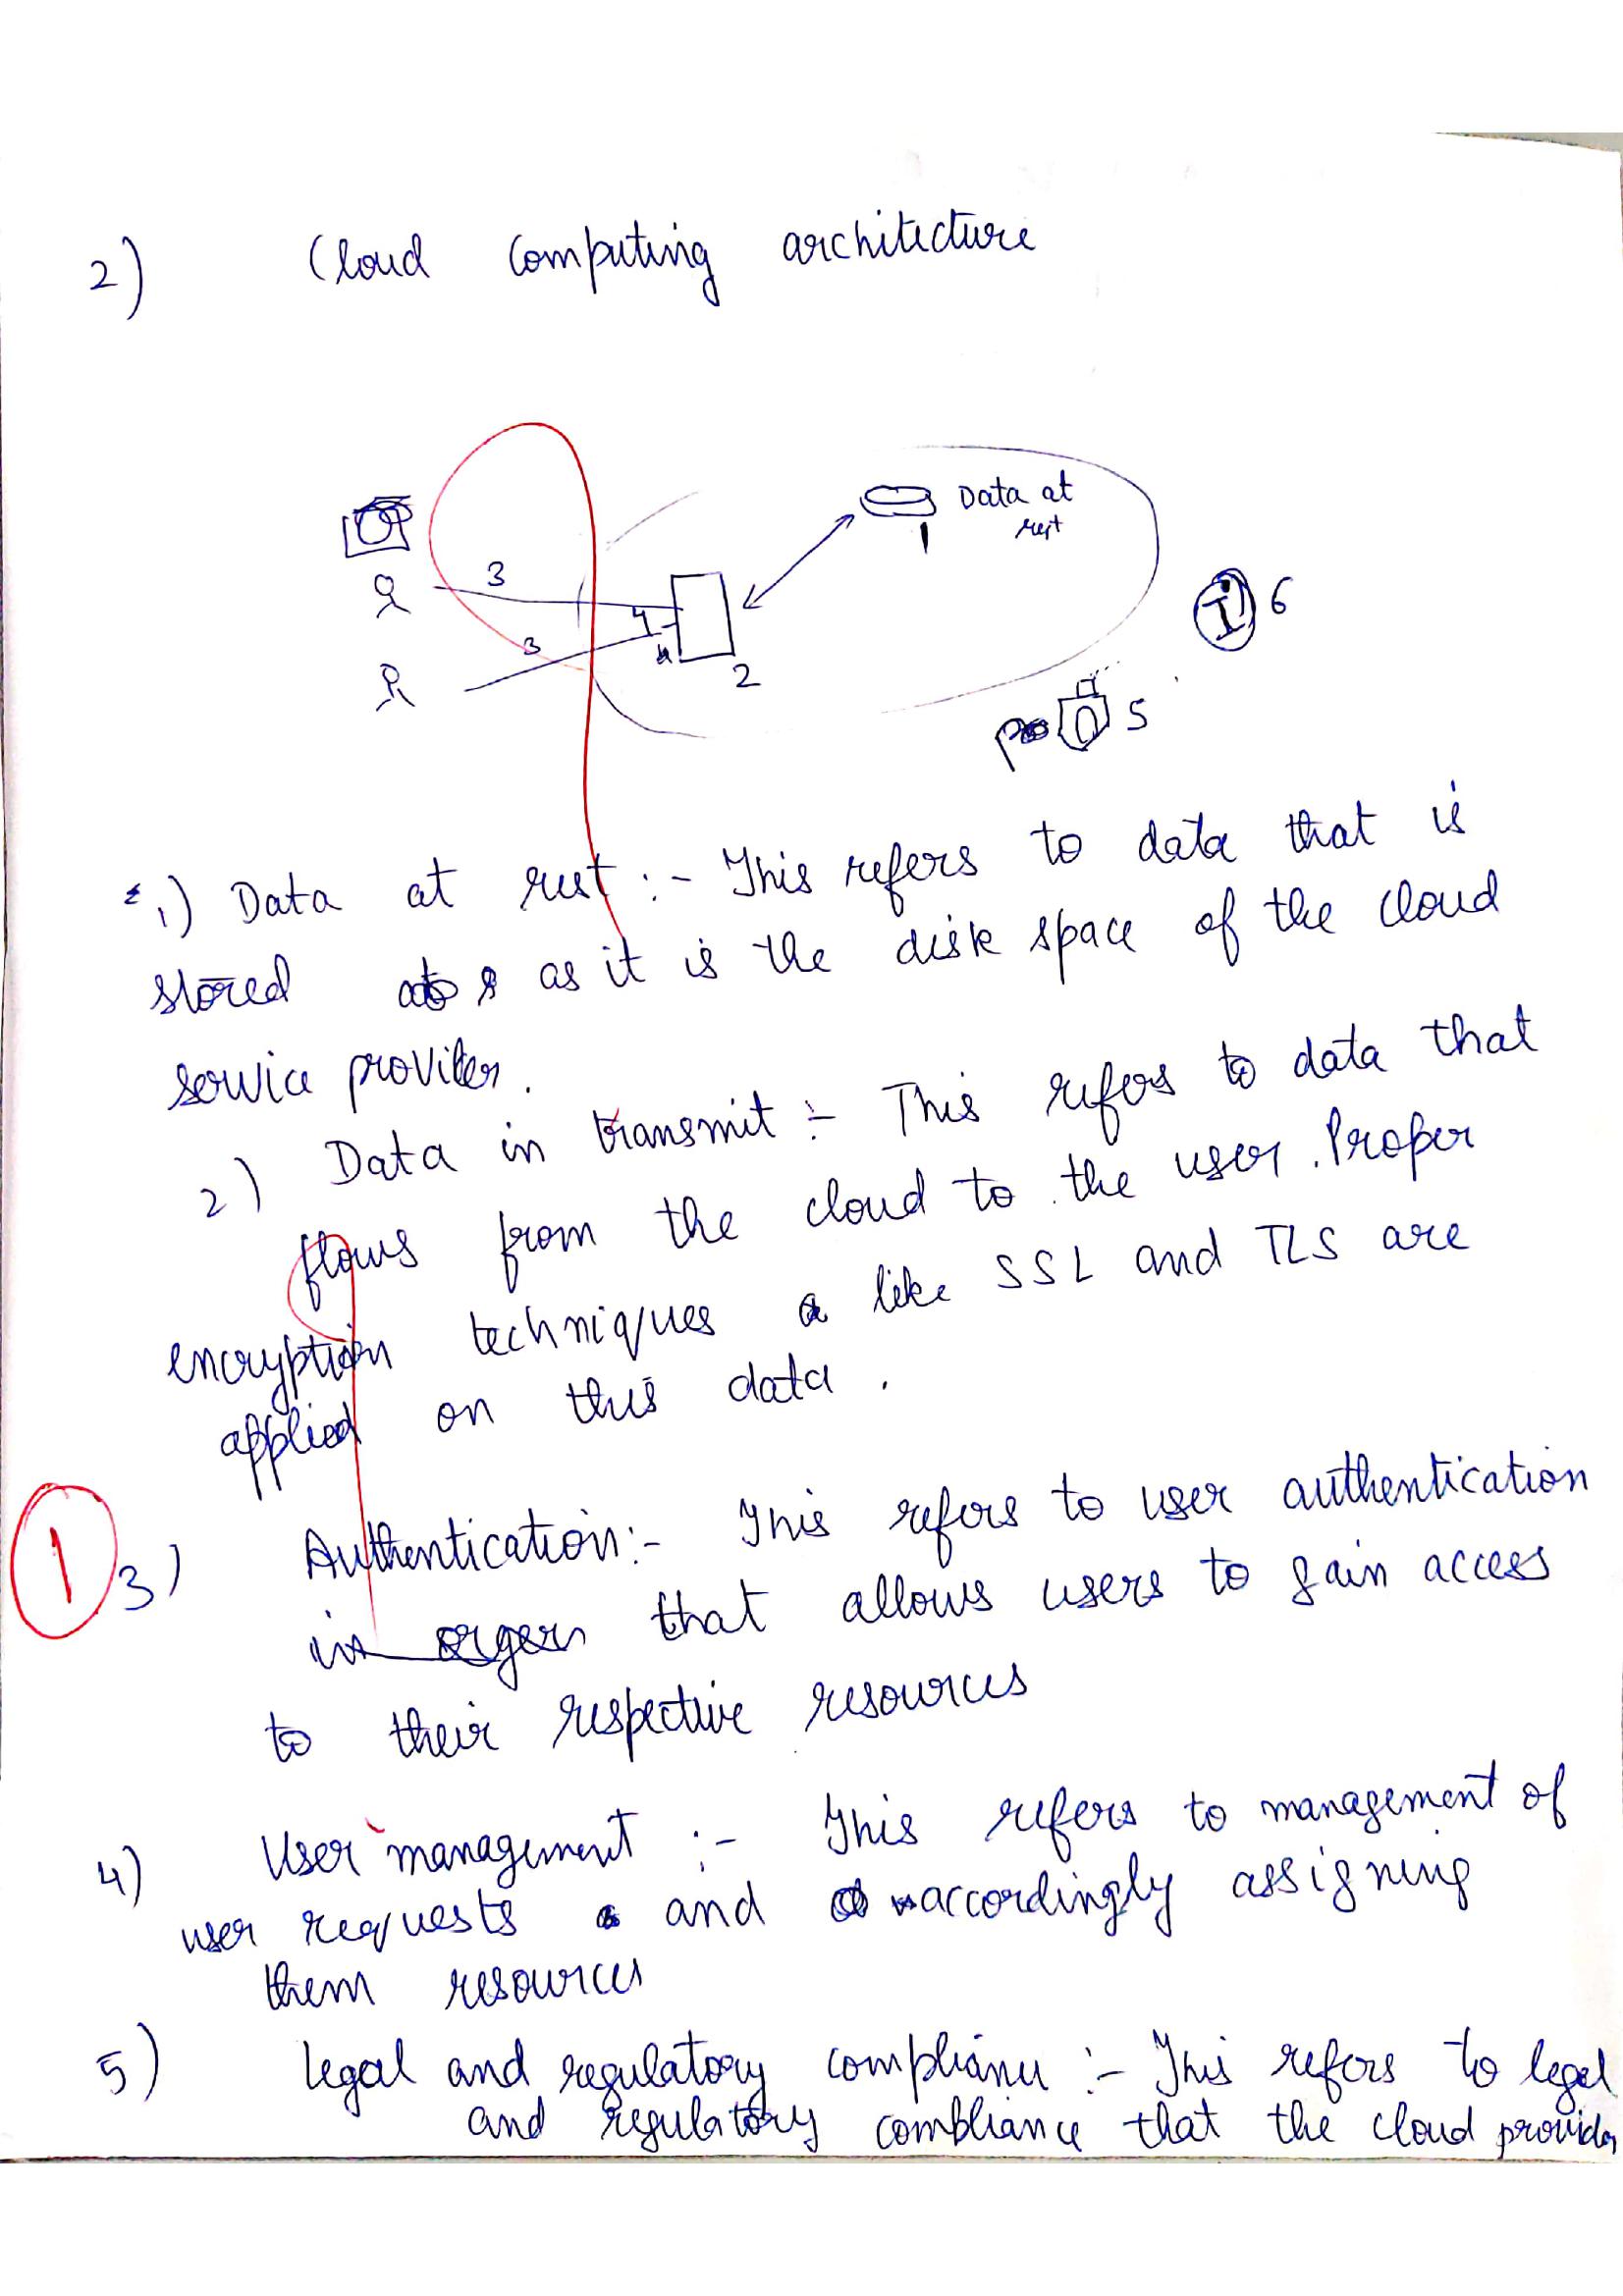 2) Cloud Computing architecture
Data at
rest
1
3
3
4
4
2
6
5
1) Data at rest :- This refers to data that is
stored as it is the disk space of the cloud
service provider.
2) Data in transmit :- This refers to data that
flows from the cloud to the user. Proper
encryption techniques like SSL and TLS are
applied on this data.
1
3) Authentication:- This refers to user authentication
that allows users to gain access
to their respective resources
4) User management :- This refers to management of
user requests and accordingly assigning
them resources
5) Legal and regulatory compliance :- This refers to legal
and regulatory compliance that the cloud provider